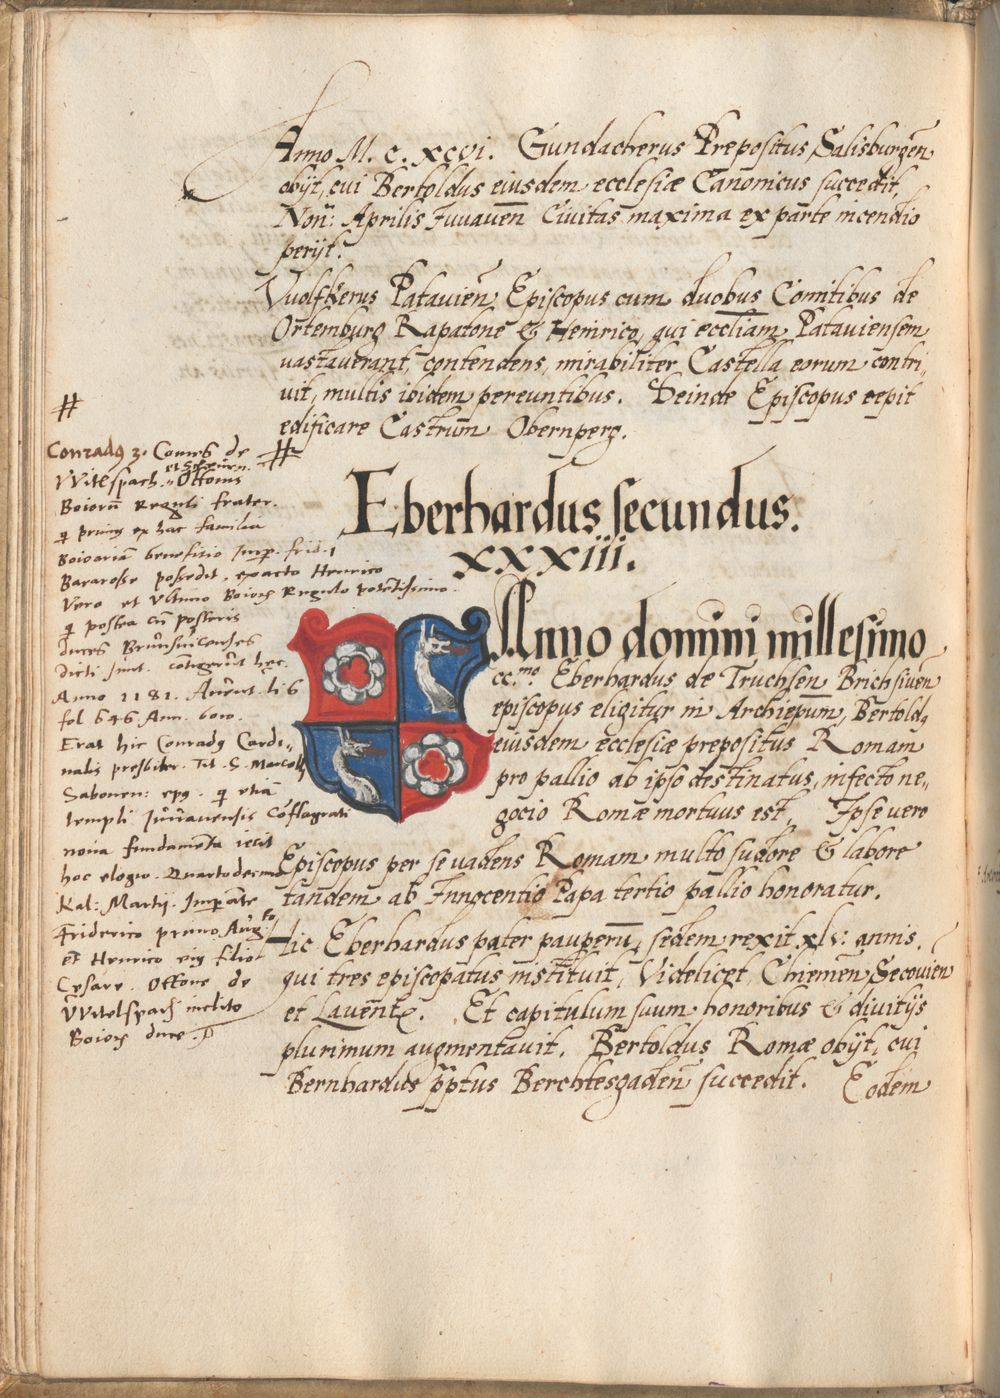 Anno M. C. XCVI. Gundacherus Prepositus Salisburgen̄
obijt, cui Bertoldus eiusdem ecclesiæ Canonicus succedit,
Non: Aprilis Juuauen̄ Ciuitas maxima ex parte incendio
perijt.
Vuolfkerus Patauien̄ Episcopus cum duobus Comitibus de
Ortemburg Rapatone & Heinrico, qui eccl̄iam Patauiensem
uastauerant, contendens, mirabiliter Castella eorum contri,
uit, multis ibidem pereuntibus. Deinde Episcopus cepit
edificare Castrum Obernperg.
#
#
Conradꝯ 3. Comes de
et Scheiern.
VVitelspach. Ottonis
Boiorū Reguli frater.
q̄ primꝯ ex hac familia
Boioariā benefitio Imp. frid. 1
Bararosse possedit, exacto Henrico
Vero et Vltimo Boiorꝫ Regulo potentissimo.
q̄ postea cū posteris
duces Brūnsuicenses
dicti sunt. contigerūt hęc.
Anno 1181. Auent. li 6
fol 646. Ann. boio.
Erat hic Conradꝯ Cardi„
nalis presbiter. Tit. S. Marcelli
Sabonen: epꝯ. q̄ etiā
templi Iuuauensis cōflagrati
noua fundamēta iecit
hoc elogio. Quartodecimo
Kal: Martij. Imperāte
Friderico primo Augto
et Henrico eiꝯ filio
Cesare. Ottone de
VVitelspach inclito
Boiorꝫ duce.
Eberhardus secundus.
XXXIII.
Anno domini millesimo
CC.mo Eberhardus de Truchsen Brichsinen̄
episcopus eligitur in Archiepūm, Bertoldꝯ
eiusdem ecclesiæ prepositus Romam
pro pallio ab ipso destinatus, infecto ne„
gocio Romæ mortuus est. Ipse uero
Episcopus per se uadens Romam multo sudore & labore
tandem ab Innocentio Papa tertio pallio honoratur.
Hic Eberhardus pater pauperū, sedem rexit xlv: annis.
qui tres episcopatus instituit, Videlicet, Chiemen̄ Secouien̄
et Lauent. Et capitulum suum honoribus & diuitijs
plurimum augmentauit. Bertoldus Romæ obijt, cui
Bernhardus p̄ptus Berchtesgaden̄ succedit. Eodem